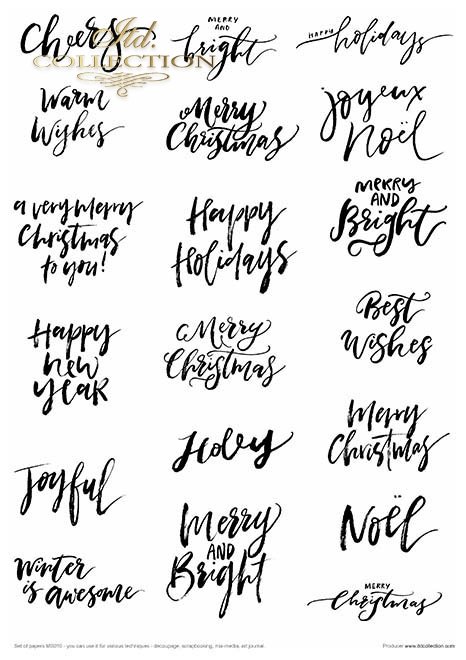 Cheers
Itd.
COLLECTION
MERRY
AND
bright
HAPPY holidays
Warm
Wishes
Merry
Christmas
Joyeux
Noël
a very Merry
Christmas
to you!
Happy
Holidays
MERRY
AND
Bright
Happy
new
year
Merry
Christmas
Best
Wishes
Joyful
Holly
Merry
Christmas
Winter
is awesome
Merry
AND
Bright
Noël
MERRY
Christmas
Set of papers M0010 - you can use it for various techniques - decoupage, scrapbooking, mix-media, art journal.
Producer www.itdcollection.com